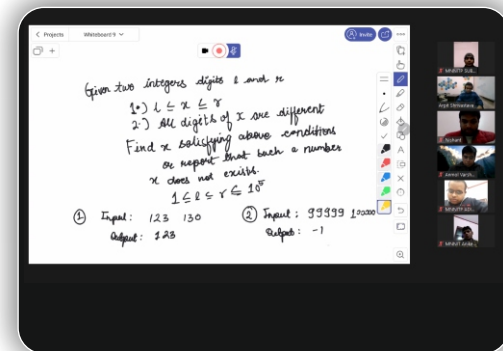 Projects
Whiteboard 9
Invite
Given two integers digits l and r
1.) l ≤ x ≤ r
2.) All digits of x are different
Find x satisfying above conditions
or report that such a number
x does not exists.
1 ≤ l ≤ r ≤ 10⁵
① Input : 123 130
Output : 123
② Input : 99999 100000
Output : -1